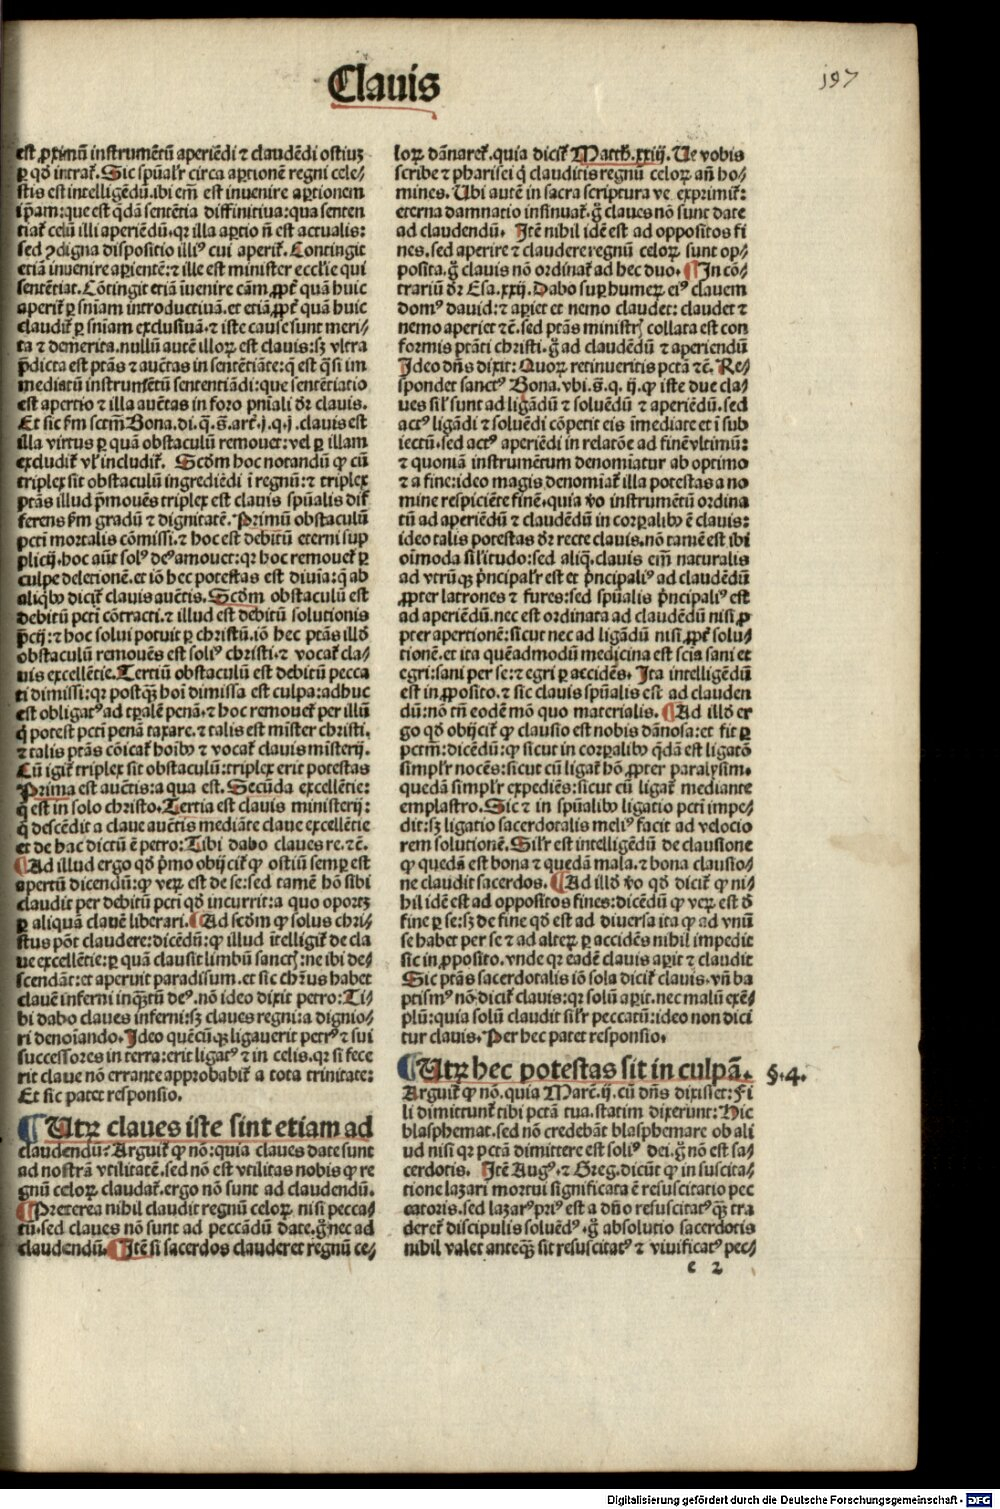 Clauis
197
est ꝓximũ instrumẽtũ aperiẽdi ⁊ claudẽdi ostiuʒ
ꝑ qđ intrať. Sic spũalr̃ circa aꝑtionẽ regni cele⸗
stis est intelligẽdũ. ibi em̃ est inuenire aꝑtionem
ip̃am: que est q̃dã sentẽtia diffinitiua: qua senten
tiať celũ illi aperiẽdũ. qꝛ illa aꝑtio ñ est actualis:
sed ↄdigna dispositio illiꝰ cui aperiť. Contingit
etiã inuenire aꝑientẽ: ⁊ ille est minister eccl'ie qui
sentẽtiat. Cõtingit etiã ĩuenire cãm, ꝓpť quã huic
aperiť ꝑ sñiam introductiuã. et etiã, ꝓpť quã huic
claudiť ꝑ sñiam exclusiuã. ⁊ iste cause sunt meri⸗
ta ⁊ demerita. nullũ autẽ illoꝝ est clauis: sʒ vltra
p̃dicta est ptãs ⁊ auctas in sentẽtiãte: q̃ est q̃si im
mediatũ instrumẽtũ sententiãdi: que sentẽtiatio
est apertio ⁊ illa auctas in foro pñiali dr̃ clauis.
Et sic ẜm sctm̃ Bona. di. q̃. s̃. arť. j. q. j. clauis est
illa virtus ꝑ quã obstaculũ remouet: vel ꝑ illam
excludiť vľ includiť. Scďm hoc notandũ ꝙ cũ
triplex sit obstaculũ ingrediẽdi ĩ regnũ: ⁊ triplex
ptãs illud p̃mouẽs triplex est clauis spũalis dif
ferens ẜm gradũ ⁊ dignitatẽ. Primũ obstaculũ
pcti mortalis cõmissi. ⁊ hoc est debitũ eterni sup
plicij. hoc aũt solꝰ deꝰ amouet: qꝛ hoc remoueť ꝑ
culpe deletionẽ. et iõ hec potestas est diuĩa: q̃ ab
aliq̃bꝰ diciť clauis auctis. Scďm obstaculũ est
debitũ pcti cõtracti. ⁊ illud est debitũ solutionis
p̃cij: ⁊ hoc solui potuit ꝑ christũ. iõ hec ptãs illđ
obstaculũ remouẽs est soliꝰ christi. ⁊ vocať cla⸗
uis excellẽtie. Tertiũ obstaculũ est debitũ pecca
ti dimissi: qꝛ postq̃ʒ hoĩ dimissa est culpa: adhuc
est obligatꝰ ad tꝑalẽ penã. ⁊ hoc remoueť per illũ
q̃ potest pcti penã taxare. ⁊ talis est mister christi.
⁊ talis ptãs cõicať hoĩbꝰ ⁊ vocať clauis misterij.
Cũ igiť triplex sit obstaculũ: triplex erit potestas
Prima est auctis: a qua est. Secũda excellẽtie:
q̃ est in solo christo. Tertia est clauis ministerij:
q̃ descẽdit a claue auctis mediãte claue excellẽtie
et de hac dictũ ẽ petro: Tibi dabo claues re. ⁊c̃.
¶Ad illud ergo qđ p̃mo obijciť ꝙ ostiũ semꝑ est
apertũ dicendũ: ꝙ veꝝ est de se: sed tamẽ hõ sibi
claudit per debitũ pcti qđ incurrit: a quo oportʒ
ꝑ aliquã clauẽ liberari. ¶Ad scďm ꝙ solus chri⸗
stus põt claudere: dicẽdũ: ꝙ illud ĩtelligiť de cla
ue excellẽtie: ꝑ quã clausit limbũ sanctoꝝ: ne ibi de⸗
scendãt: et aperuit paradisum. et sic chr̃us habet
clauẽ inferni inq̃ʒtũ deꝰ. nõ ideo dixit petro: Ti⸗
bi dabo claues inferni: sʒ claues regni: a dignio⸗
ri denoĩando. Ideo quẽcũqʒ ligauerit petrꝰ ⁊ sui
successores in terra: erit ligatꝰ ⁊ in celis. qꝛ si fece
rit claue nõ errante approbabiť a tota trinitate:
Et sic patet responsio.
¶Utꝝ claues iste sint etiam ad
claudendũ: Arguiť ꝙ nõ: quia claues date sunt
ad nostrã vtilitatẽ. sed nõ est vtilitas nobis ꝙ re
gnũ celoꝝ claudať. ergo nõ sunt ad claudendũ.
¶Preterea nihil claudit regnũ celoꝝ nisi pecca⸗
tũ. sed claues nõ sunt ad peccãdũ date. g̃ nec ad
claudendũ. ¶Itẽ si sacerdos clauderet regnũ ce⸗
loꝝ dãnareť. quia diciť Matth. xxiij. Ve vobis
scribe ⁊ pharisei q̃ clauditis regnũ celoꝝ añ ho⸗
mines. Ubi autẽ in sacra scriptura ve exprimiť:
eterna damnatio insinuať. g̃ claues nõ sunt date
ad claudendũ. Itẽ nihil idẽ est ad oppositos fi
nes. sed aperire ⁊ claudere regnũ celoꝝ sunt op⸗
posita. g̃ clauis nõ ordinať ad hec duo. ¶In cõ⸗
trariũ dr̃ Esa. xxij. Dabo suꝑ humeꝝ eiꝰ clauem
domꝰ dauid: ⁊ aꝑiet et nemo claudet: claudet ⁊
nemo aperiet ⁊c̃. sed ptãs ministroꝝ collata est con
formis ptãti christi. g̃ ad claudẽdũ ⁊ aperiendũ
Ideo dñs dixit: Quoꝝ retinueritis pctã ⁊c̃. Re⸗
spondet sanctꝰ Bona. vbi. s̃. q. ij. ꝙ iste due cla⸗
ues sil'r sunt ad ligãdũ ⁊ soluẽdũ ⁊ aperiẽdũ. sed
actꝰ ligãdi ⁊ soluẽdi cõpetit eis imediate et ĩ sub
iectũ. sed actꝰ aperiẽdi in relatõe ad finẽ vltimũ:
⁊ quoniã instrumẽtum denomiatur ab optimo
⁊ a fine: ideo magis denomiať illa potestas a no
mine respiciẽte finẽ. quia ṽo instrumẽtũ ordina
tũ ad aperiẽdũ ⁊ claudẽdũ in corꝑalibꝰ ẽ clauis:
ideo talis potestas dr̃ recte clauis. nõ tamẽ est ibi
oĩmoda sil'itudo: sed aliq̃. clauis em̃ naturalis
ad vtrũqʒ p̃ncipalr̃ est et p̃ncipaliꝰ ad claudẽdũ
ꝓpter latrones ⁊ fures: sed spũalis p̃ncipaliꝰ est
ad aperiẽdũ. nec est ordinata ad claudẽdũ nisi ꝓ
pter apertionẽ: sicut nec ad ligãdũ nisi ꝓpť solu⸗
tionẽ. et ita quẽadmodũ medicina est scia sani et
egri: sani per se: ⁊ egri ꝑ accidẽs. Ita intelligẽdũ
est in ꝓposito. ⁊ sic clauis spũalis est ad clauden
dũ: nõ tñ eodẽ mõ quo materialis. ¶Ad illđ er
go qđ obijciť ꝙ clausio est nobis dãnosa: et fit ꝑ
pctm̃: dicẽdũ: ꝙ sicut in corꝑalibꝰ q̃dã est ligatõ
simpl'r nocẽs: sicut cũ ligať hõ ꝓpter paralysim.
quedã simpl'r expediẽs: sicut cũ ligať mediante
emplastro. Sic ⁊ in spũalibꝰ ligatio pcti impe⸗
dit: sʒ ligatio sacerdotalis meliꝰ facit ad velocio
rem solutionẽ. Sil'r est intelligẽdũ de clausione
ꝙ quedã est bona ⁊ quedã mala. ⁊ bona clausio⸗
ne claudit sacerdos. ¶Ad illđ ṽo qđ diciť ꝙ ni⸗
hil idẽ est ad oppositos fines: dicẽdũ ꝙ veꝝ est đ
fine ꝑ se: sʒ de fine qđ est ad diuersa ita ꝙ ad vnũ
se habet per se ⁊ ad alteꝝ ꝑ accidẽs nihil impedit
sic in ꝓposito. vnde qꝛ eadẽ clauis aꝑit ⁊ claudit
Sic ptãs sacerdotalis iõ sola diciť clauis. vñ ba
ptismꝰ nõ diciť clauis: qꝛ solũ aꝑit. nec malũ exẽ⸗
plũ: quia solũ claudit sil'r peccatũ: ideo non dici
tur clauis. Per hec patet responsio.
¶Utꝝ hec potestas sit in culpã. §.4.
Arguiť ꝙ nõ. quia Marci. ij. cũ dñs dixisset: Fi
li dimittunť tibi pctã tua. statim dixerunt: Hic
blasphemat. sed nõ credebãt blasphemare ob ali
ud nisi qꝛ pctã dimittere est soliꝰ dei. g̃ nõ est sa⸗
cerdotis. Itẽ Augꝰ. ⁊ Greg. dicũt ꝙ in suscita⸗
tione lazari mortui significata ẽ resuscitatio pec
catoris. sed lazarꝰ priꝰ est a dño resuscitatꝰ q̃ʒ tra
dereť discipulis soluẽdꝰ. g̃ absolutio sacerdotis
nihil valet anteq̃ʒ sit resuscitatꝰ ⁊ viuificatꝰ pec⸗
c 2
Digitalisierung gefördert durch die Deutsche Forschungsgemeinschaft - DFG